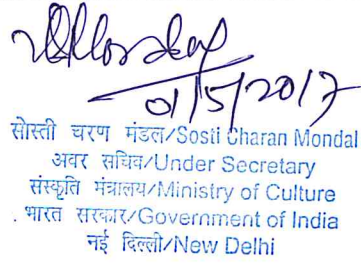 01/5/2017
सोस्ती चरण मंडल/Sosti Charan Mondal
अवर सचिव/Under Secretary
संस्कृति मंत्रालय/Ministry of Culture
भारत सरकार/Government of India
नई दिल्ली/New Delhi